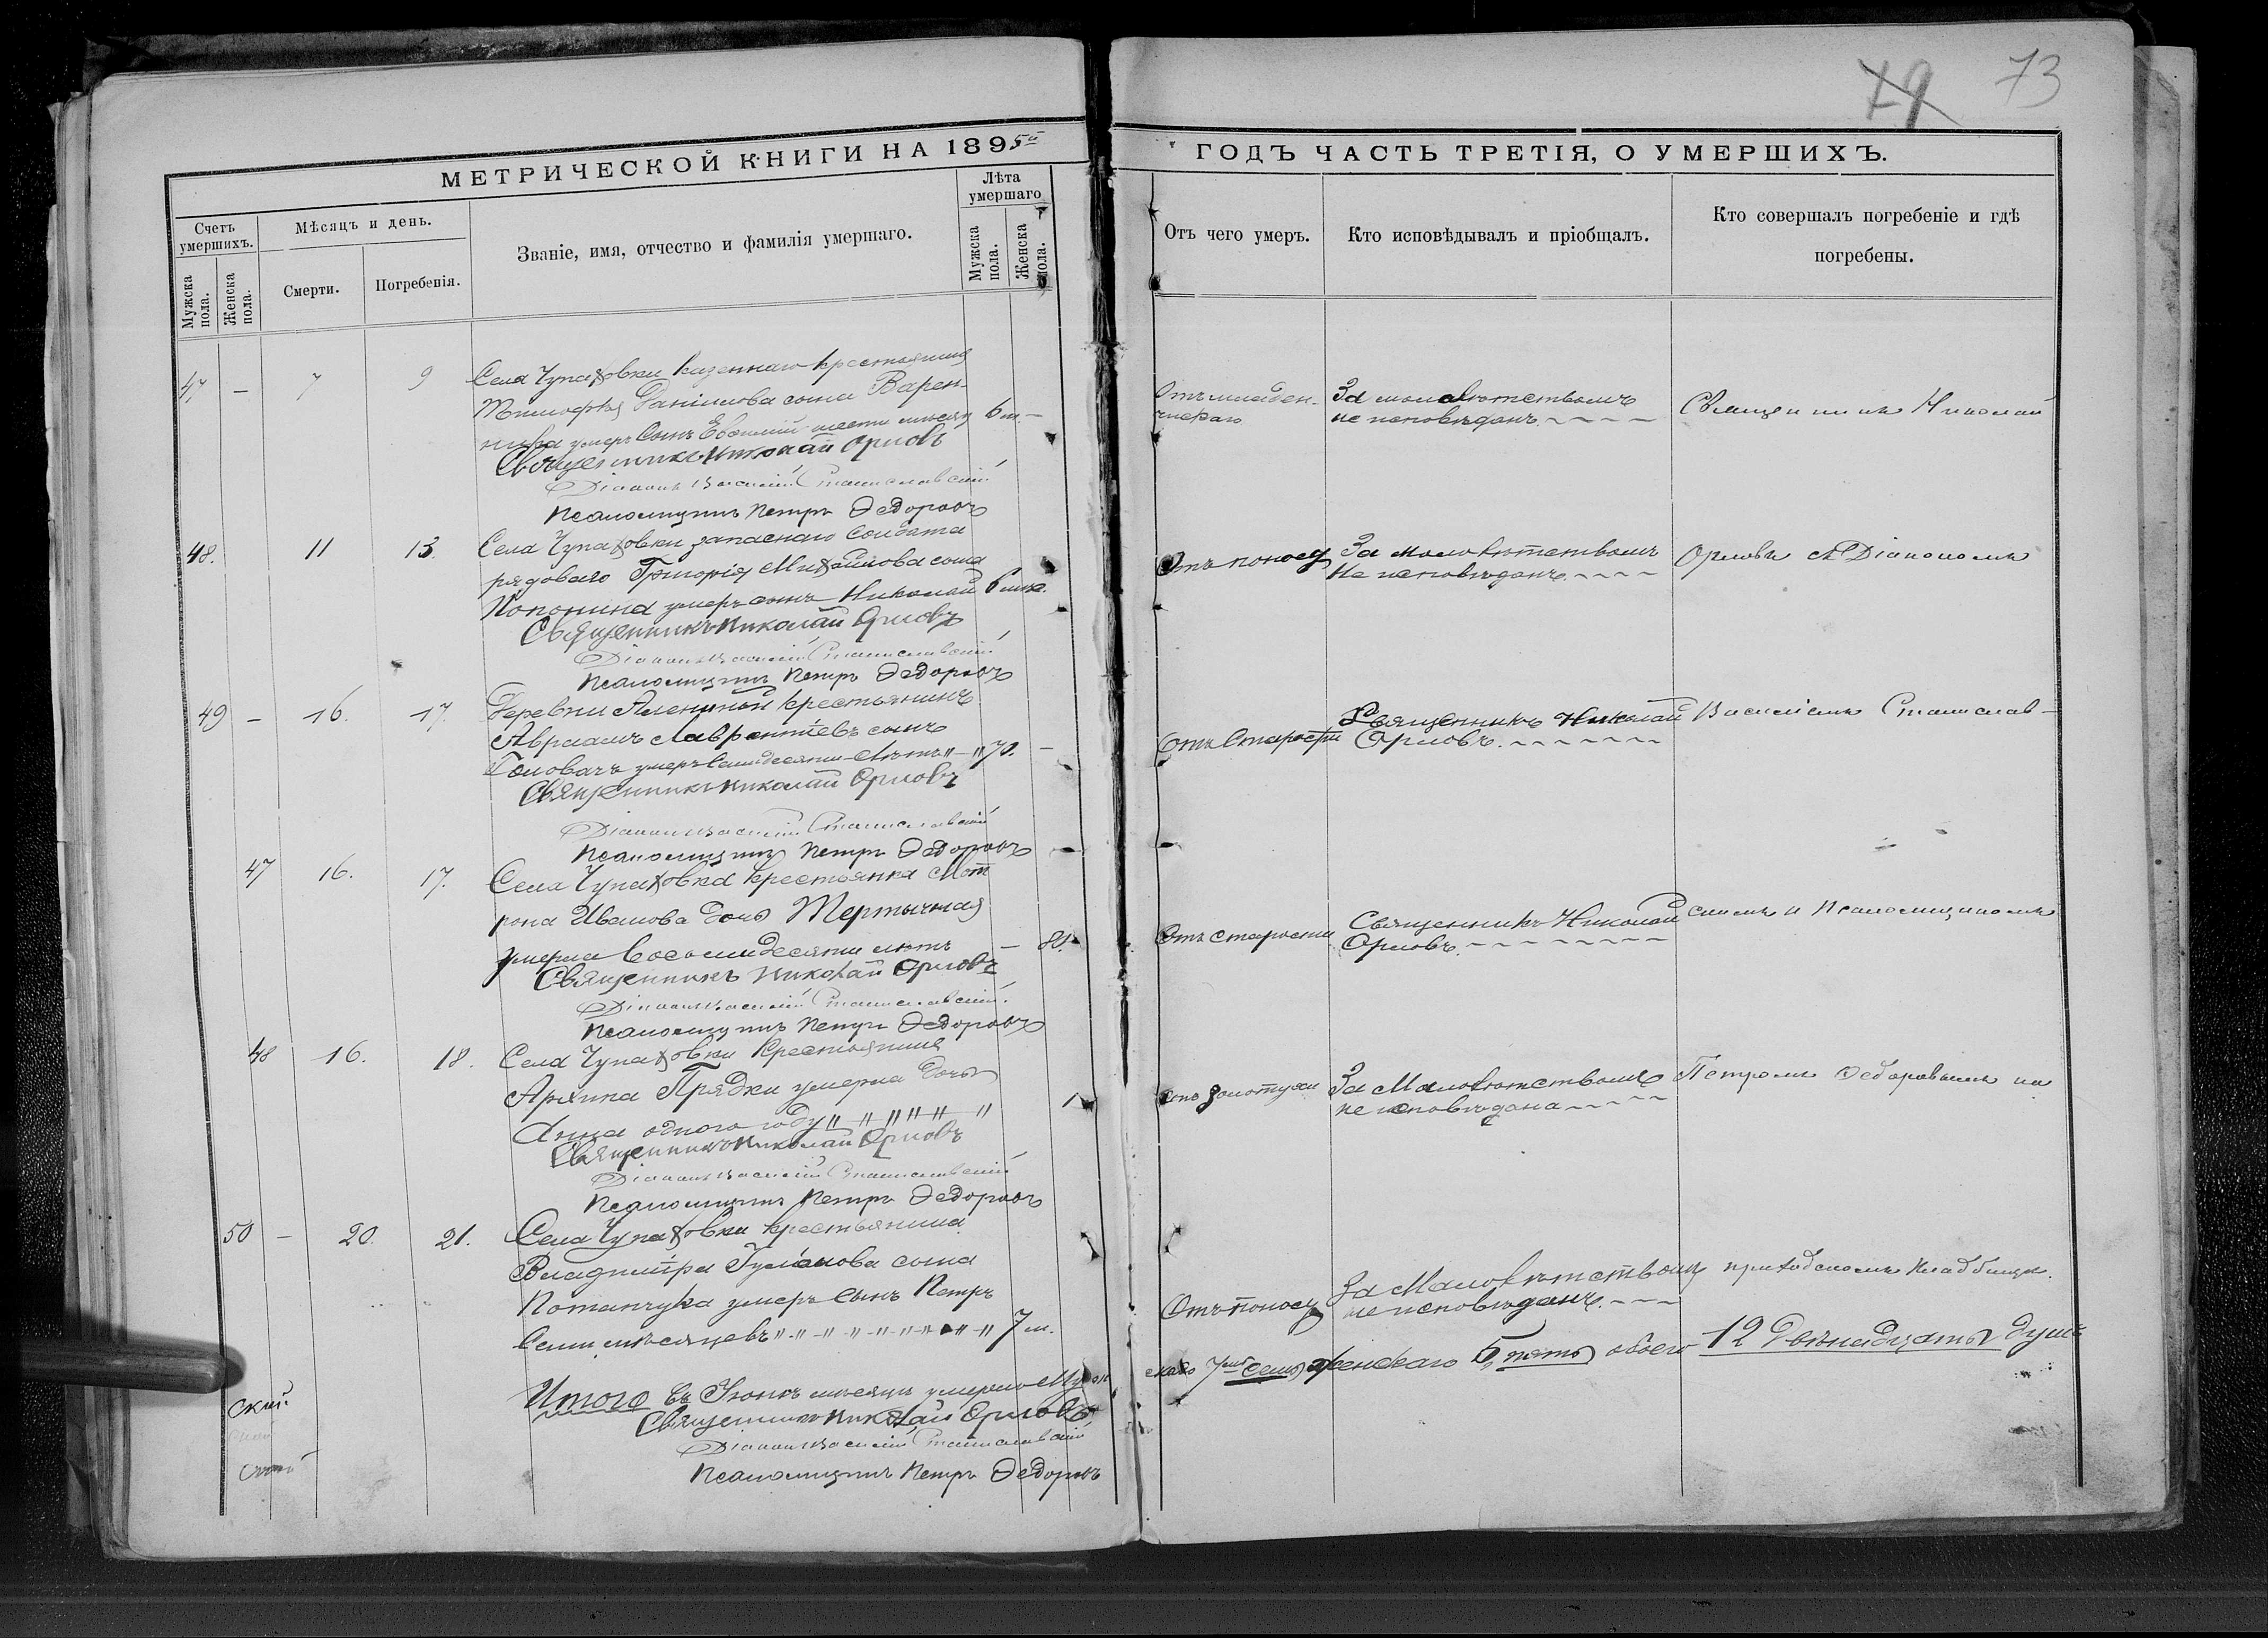 79 73
МЕТРИЧЕСКОЙ КНИГИ НА 1895й
ГОДЪ ЧАСТЬ ТРЕТІЯ, О УМЕРШИХЪ.
Счетъ умершихъ.
Мужска пола.
Женска пола.
Мѣсяцъ и день.
Смерти.
Погребенія.
Званіе, имя, отчество и фамилія умершаго.
Лѣта умершаго
Мужска пола.
Женска пола.
Отъ чего умеръ.
Кто исповѣдывалъ и пріобщалъ.
Кто совершалъ погребеніе и гдѣ
погребены.
47 – 7 9 Села Чупаховки казеннаго крестьянина
Тимофея Даніилова сына Варен-
ника умеръ сынъ Евѳимій шести месяц 6 м. –
Священникъ Николай Орловъ
Діаконъ Василій Станиславскій
Псаломщикъ Петръ Ѳедоровъ
Отъ младен-
ческаго
За малолѣтствомъ
не исповѣданъ.
Священникъ Николай
48. 11 13. Села Чупаховки запаснаго солдата
рядоваго Григорія Михайлова сына
умеръ сынъ Николай 6
Священникъ Николай Орловъ
Діаконъ Василій Станиславскій
Псаломщикъ Петръ Ѳедоровъ
Отъ поноса
За малолѣтствомъ
не исповѣданъ.
Орловъ съ Діакономъ
49 – 16. 17. Деревни крестьянинъ
Авраамъ Лаврентіевъ сынъ
Головачъ умеръ семидесяти лѣтъ „ – „ 70. –
Священникъ Николай Орловъ
Діаконъ Василій Станиславскій
Псаломщикъ Петръ Ѳедоровъ
Отъ старости
Священникъ Николай
Орловъ.
Василіемъ Станислав-
47 16. 17. Села Чупаховка крестьянка Мат
рона Иванова дочь Тертычная
умерла восьмидесяти лѣтъ – 80.
Священникъ Николай Орловъ
Діаконъ Василій Станиславскій
Псаломщикъ Петръ Ѳедоровъ
Отъ старости
Священникъ Николай
Орловъ.
скимъ и Псаломщикомъ
48 16. 18. Села Чупаховки крестьянина
Архипа Прядки умерла дочь
Анна одного году „ „ „ „ „ „ 1
Священникъ Николай Орловъ
Діаконъ Василій Станиславскій
Псаломщикъ Петръ Ѳедоровъ
золотухи
За малолѣтствомъ
не исповѣдана
Петромъ Ѳедоровымъ на
50 – 20. 21. Села Чупаховки крестьянина
Владиміра сына
Потапчука умеръ сынъ Петръ
Семи мѣсяцевъ „ – „ – „ – „ – „ – „ 7 м.
Отъ поноса
За малолѣтствомъ
не исповѣданъ.
приходскомъ кладбищѣ.
Итого въ Іюнѣ месяцѣ умерло Муж
скаго 7 семь женскаго 5 пять обоего 12 двѣнадцать душъ
Священникъ Николай Орловъ
Діаконъ Василій Станиславскій
Псаломщикъ Петръ Ѳедоровъ
ский